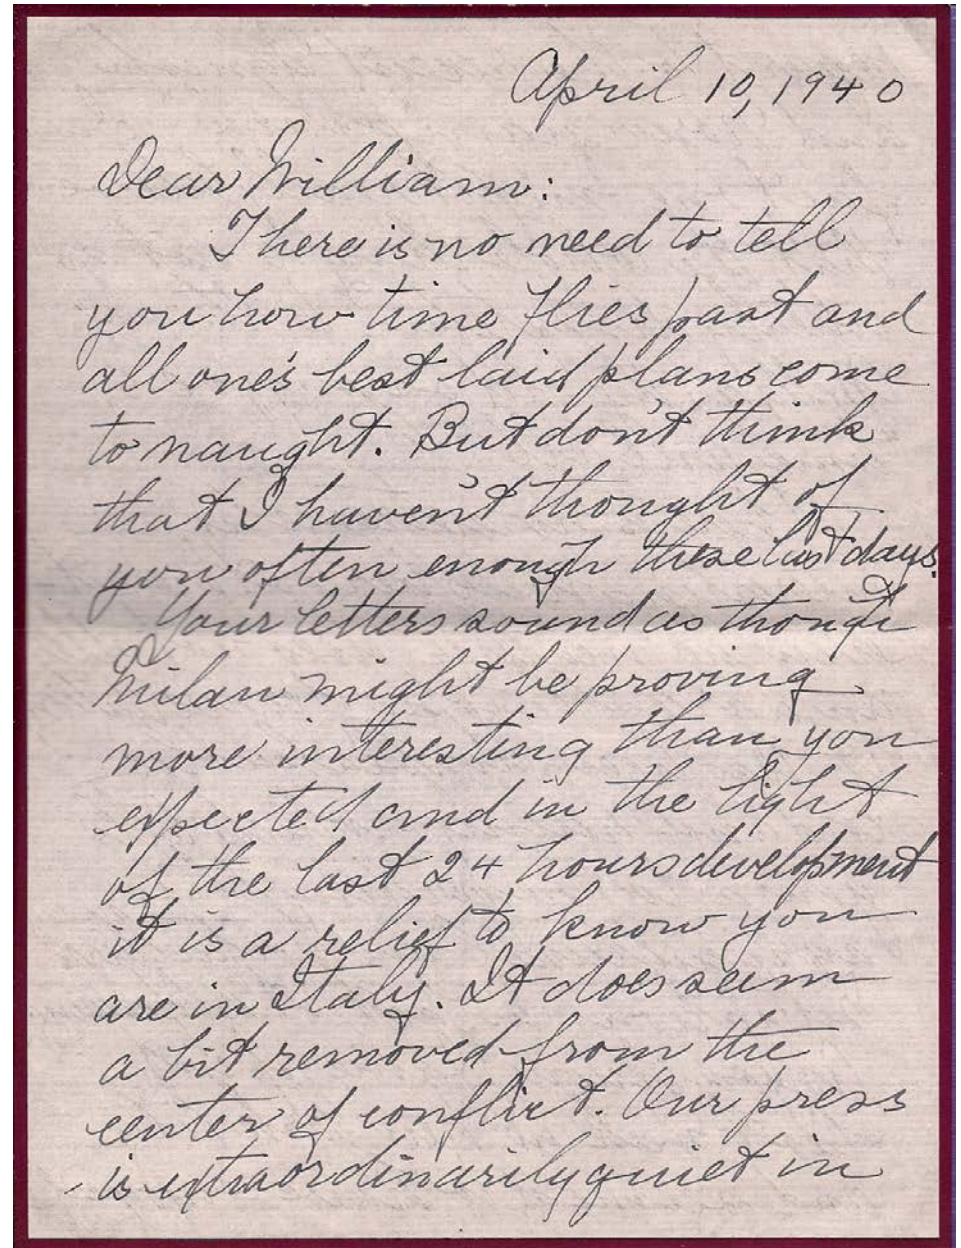 April 10, 1940
Dear William:
There is no need to tell
you how time flies past and
all one's best laid plans come
to naught. But don't think
that I haven't thought of
you often enough these last days.
Your letters sound as though
Milan might be proving
more interesting than you
expected and in the light
of the last 24 hours development
it is a relief to know you
are in Italy. It does seem
a bit removed from the
center of conflict. Our press
is extraordinarily quiet in